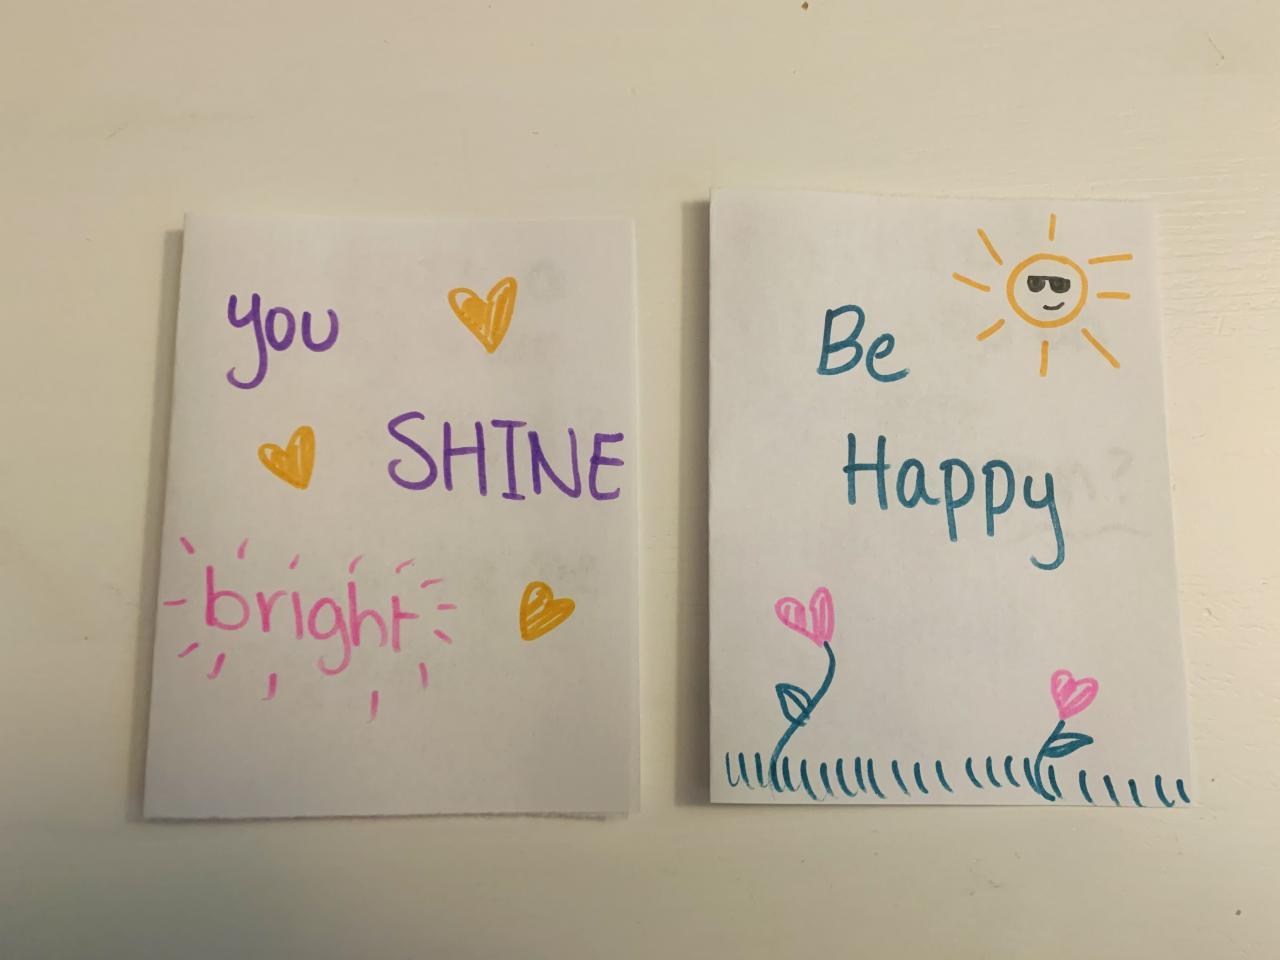 you
SHINE
bright
Be
Happy